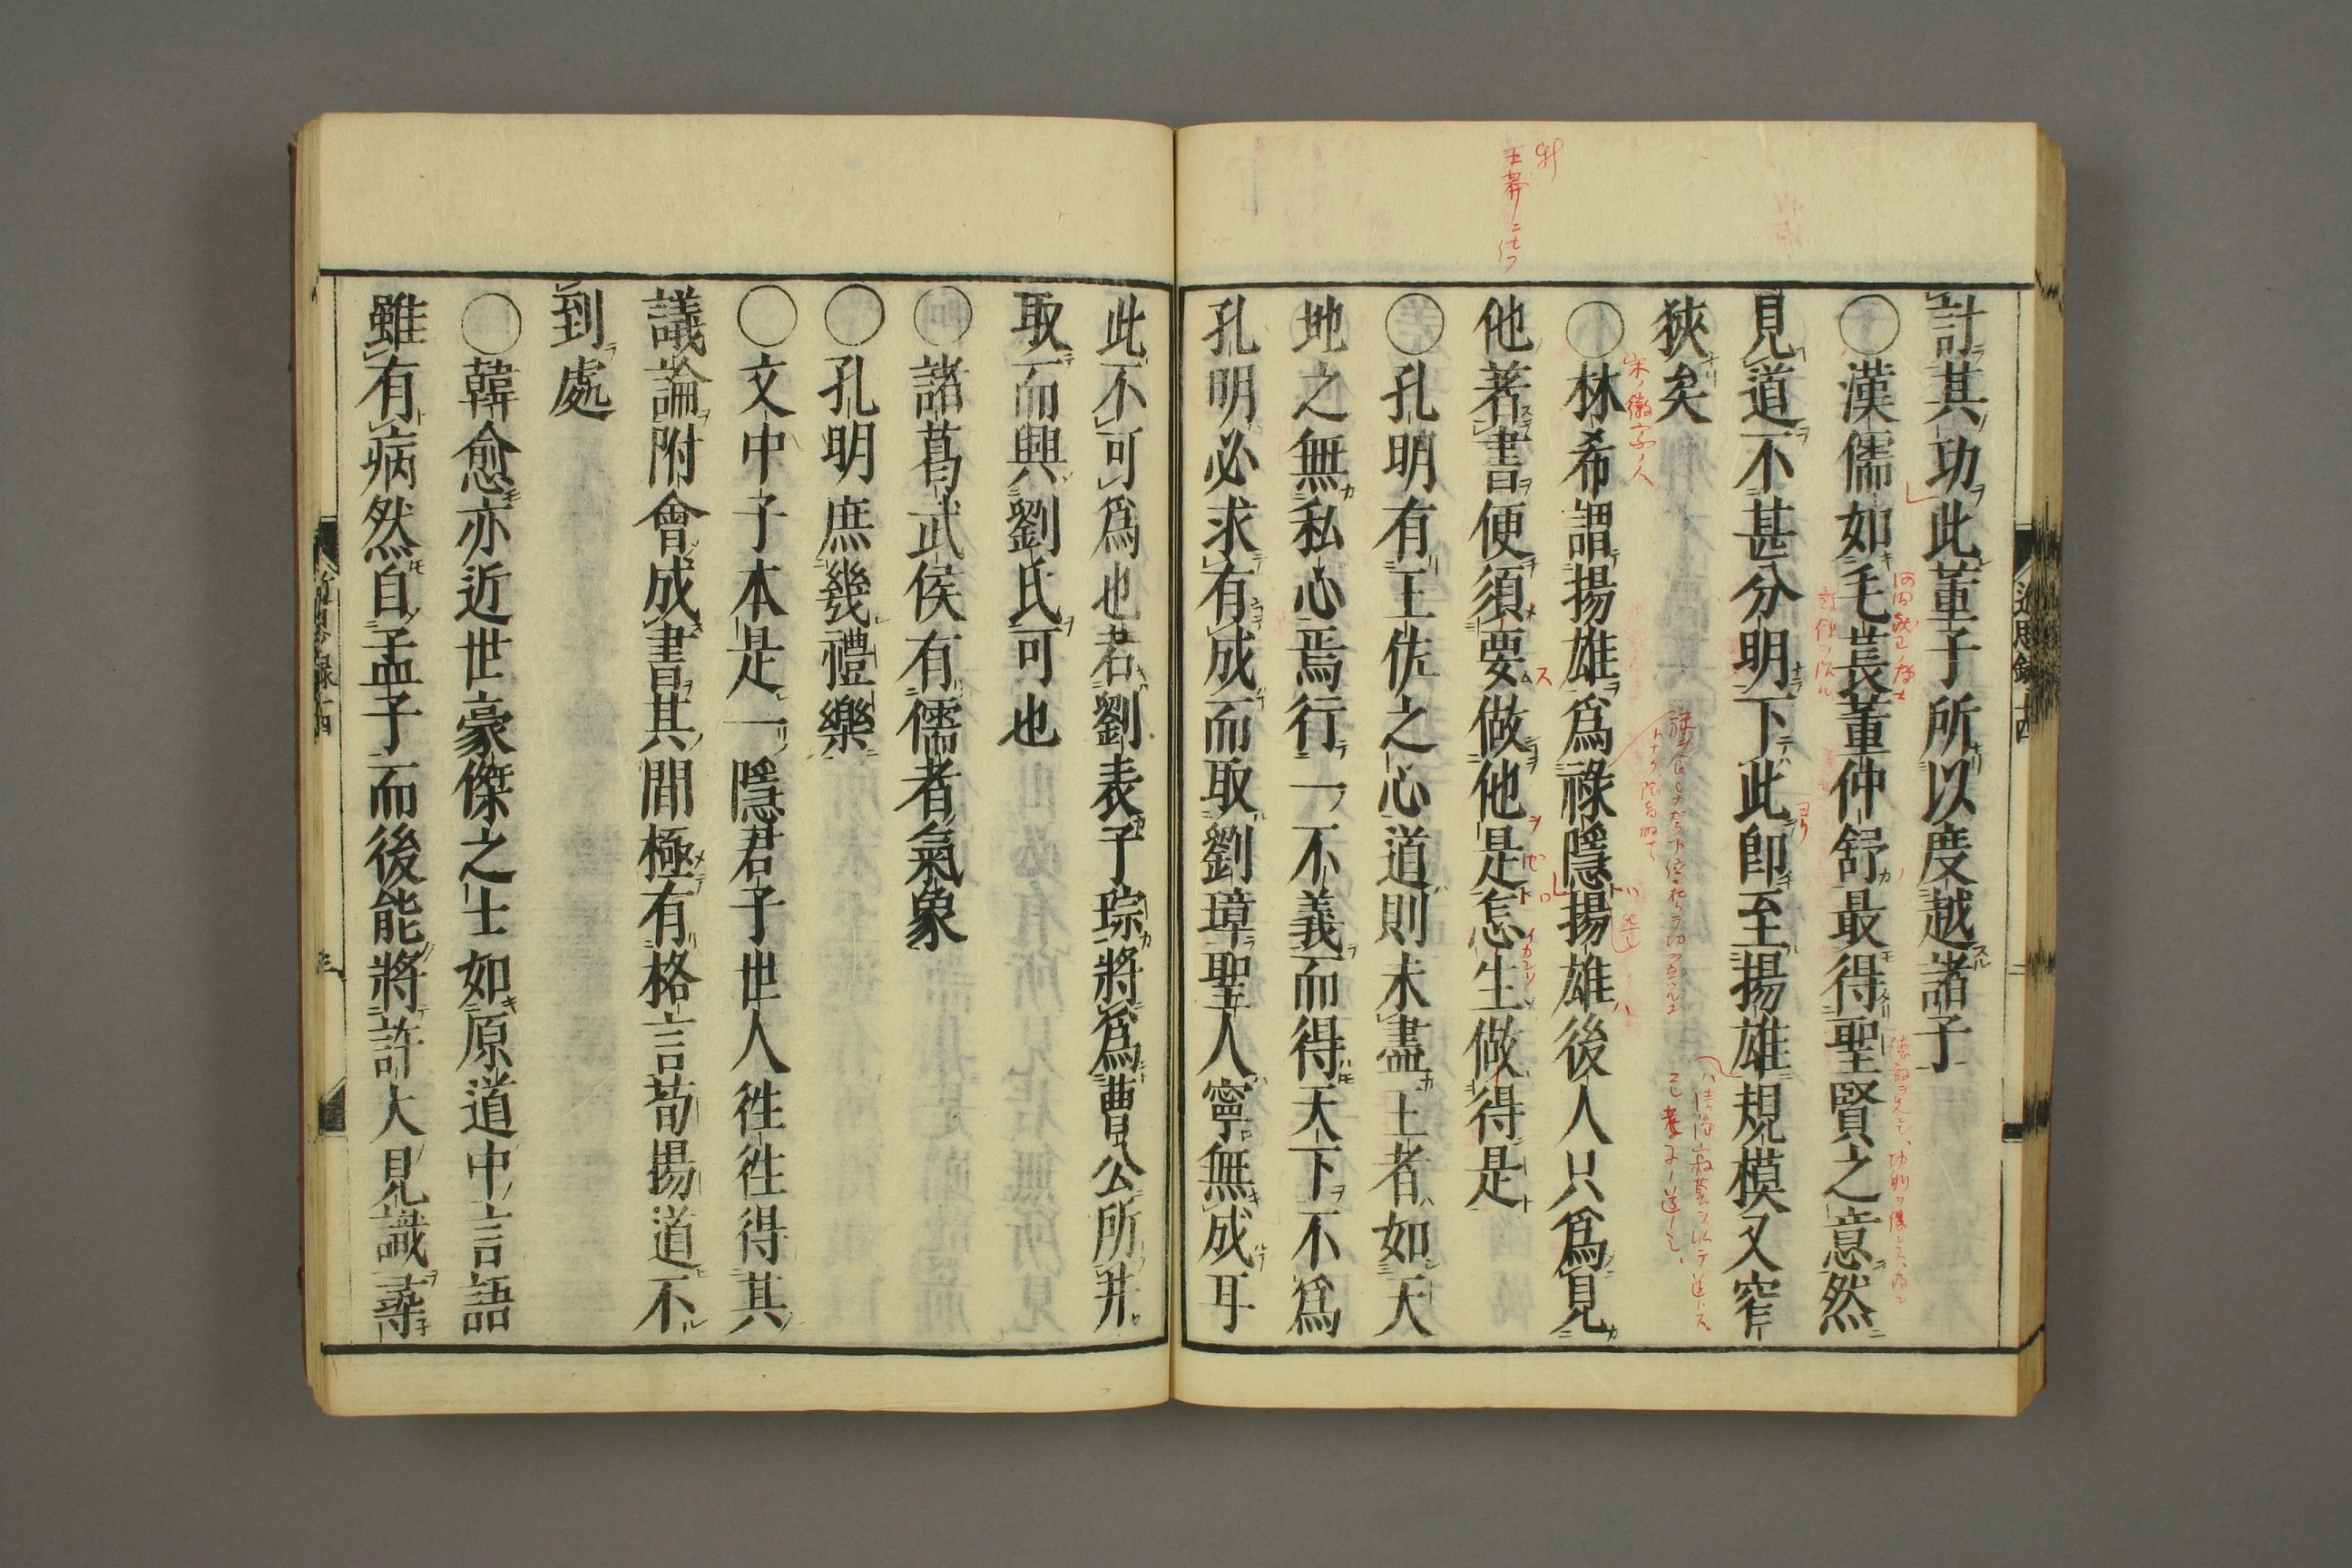 計其功此董子所以度越諸子
○漢儒如毛萇董仲舒最得聖賢之意然
見道不甚分明下此卽至揚雄規模又窄
狹矣
○林希謂揚雄爲祿隱揚雄後人只爲見
他著書便須要做他是怎生做得是
○孔明有王佐之心道則未盡王者如天
地之無私心焉行一不義而得天下不爲
孔明必求有成而取劉璋聖人寧無成耳
此不可爲也若劉表子琮將爲曹公所并
取而興劉氏可也
○諸葛武侯有儒者氣象
○孔明庶幾禮樂
○文中子本是一隱君子世人徃徃得其
議論附會成書其間極有格言荀揚道不
到處
○韓愈亦近世豪傑之士如原道中言語
雖有病然自孟子而後能將許大見識尋
近思録
王莽ニ仕フ